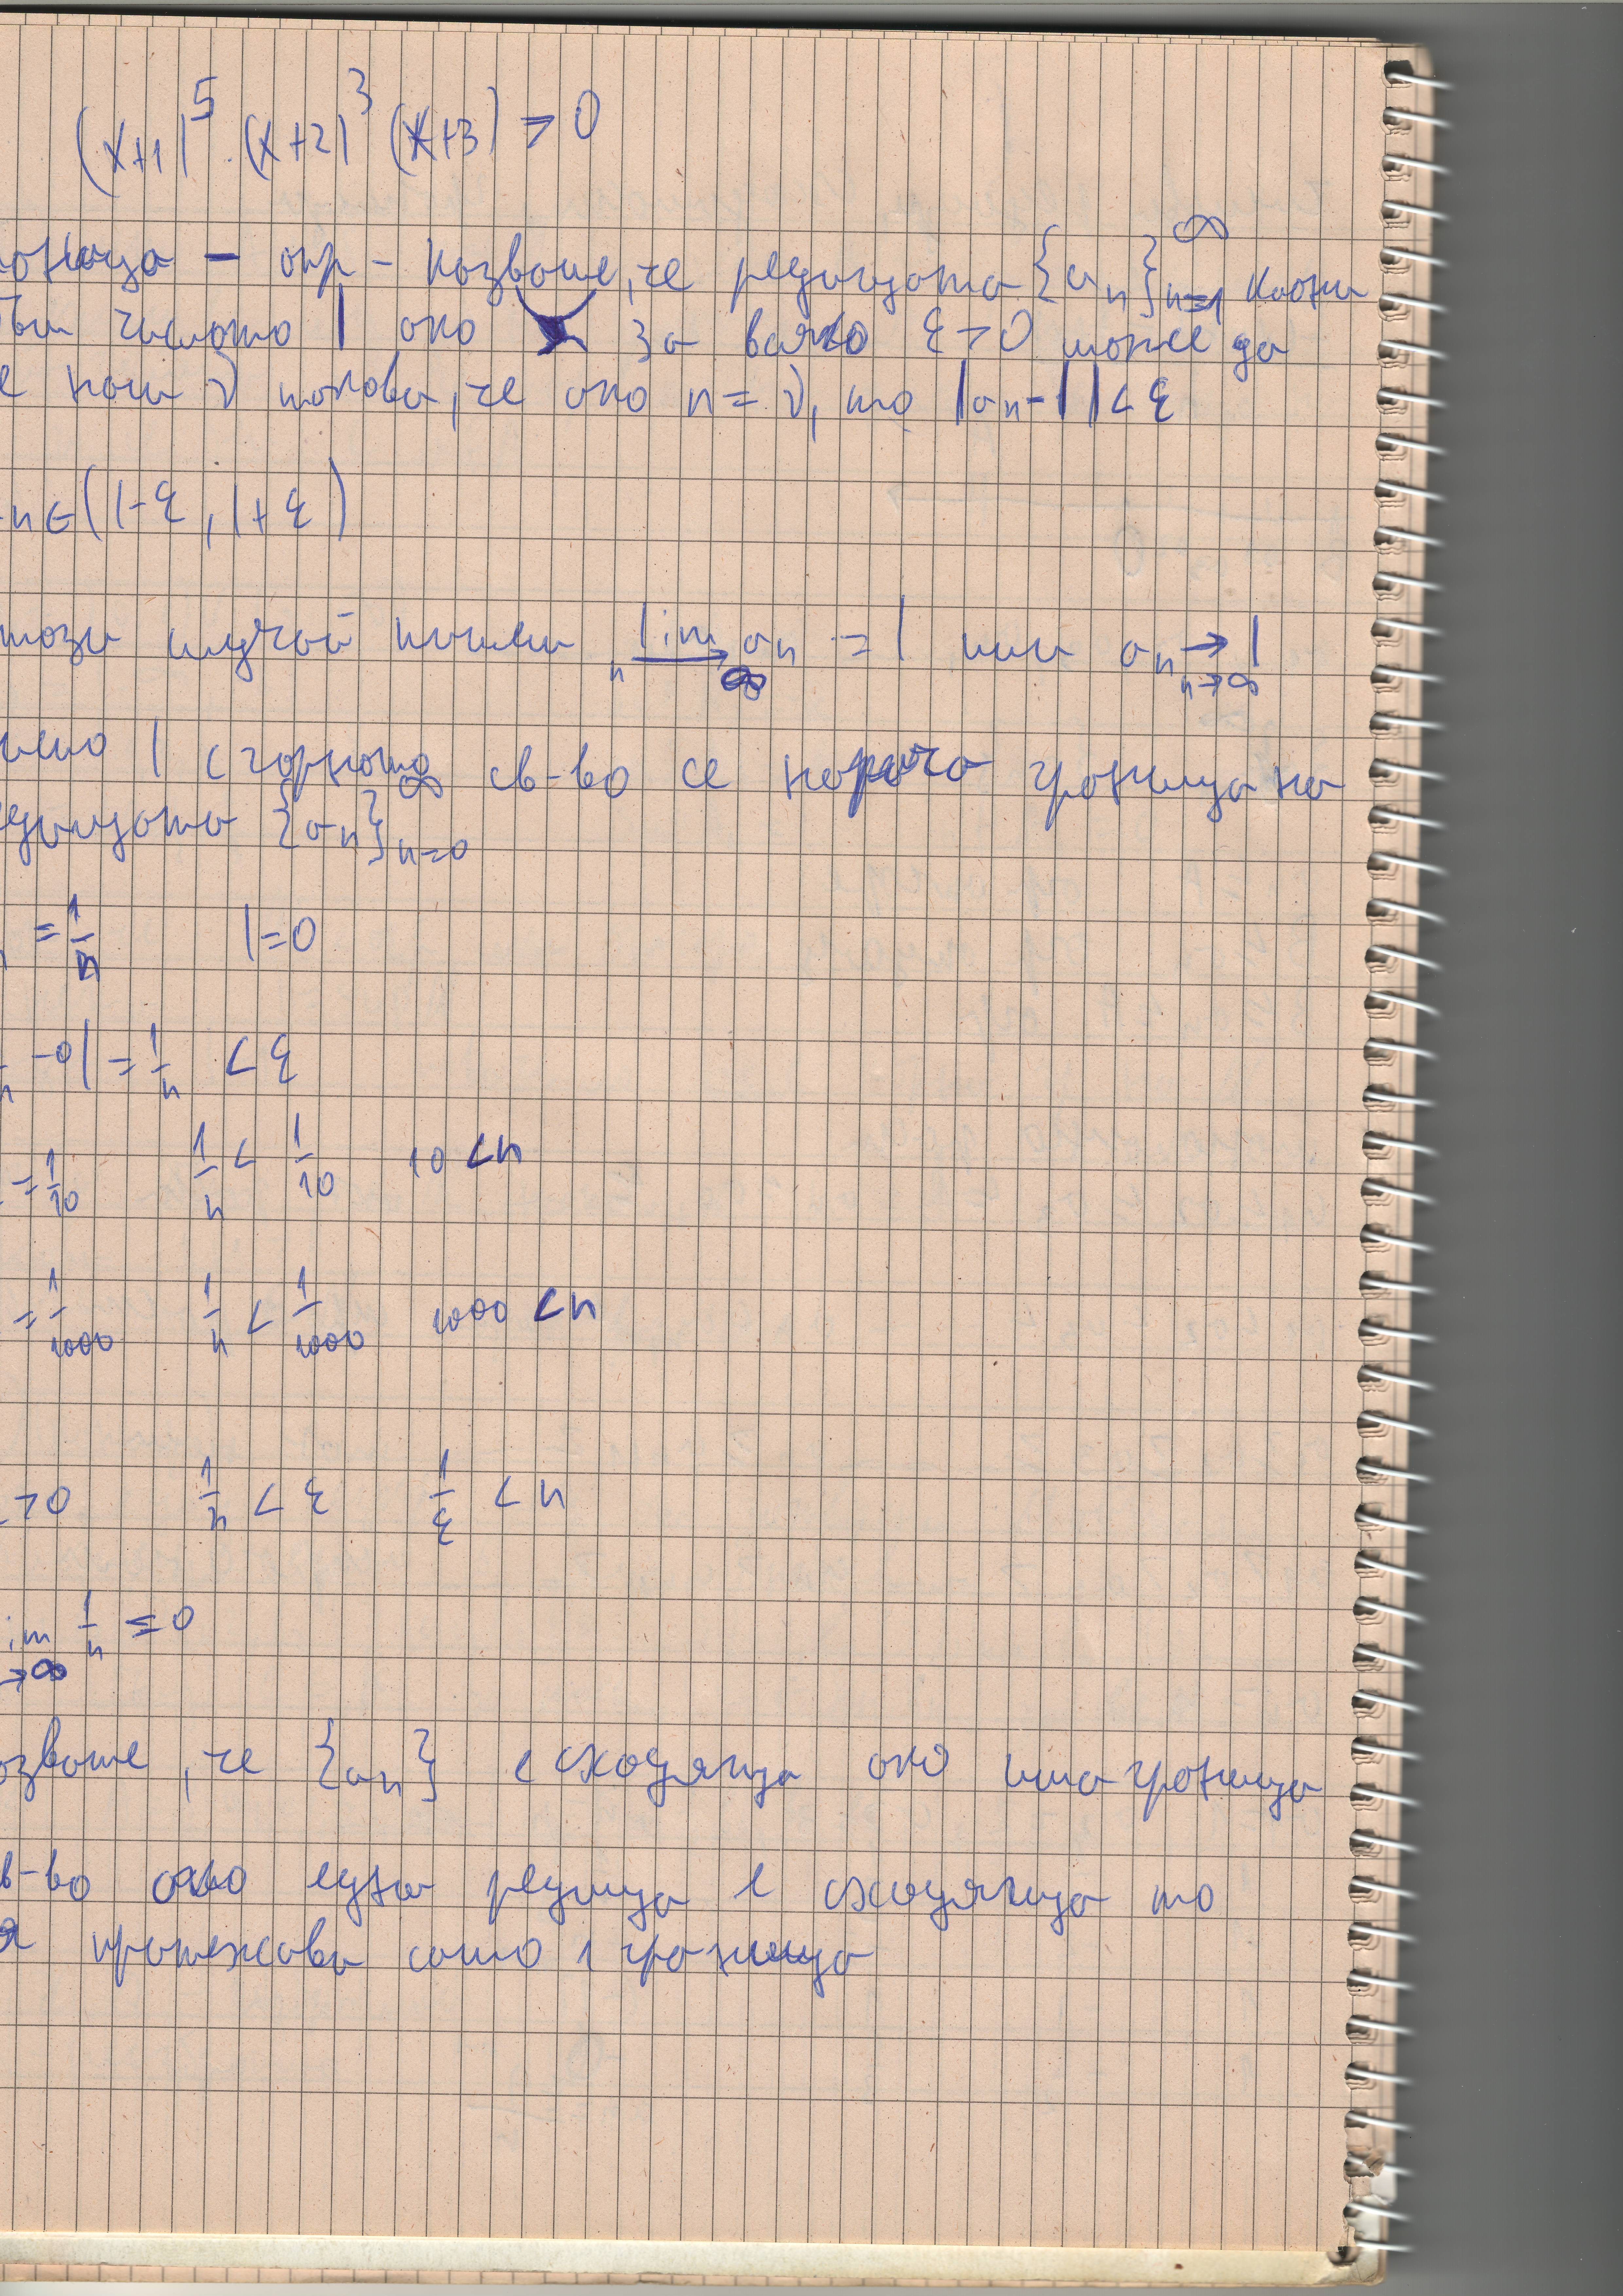 (x+1)⁵.(x+2)³(x+3) > 0
оница – опр – казваме, че редицата {aₙ}ₙ₌₁^∞ клони
числото l ако за всяко ε>0 може да
се нам ν такова, че ако n = ν, то |aₙ-l|<ε
n∈(l-ε, l+ε)
този случай пишем lim aₙ = l или aₙ → l
n→∞ n→∞
число l с горното св-во се нарича граница на
редицата {aₙ}ₙ₌₀^∞
= 1/n l=0
-0| = 1/n < ε
= 1/10 1/n < 1/10 10 < n
= 1/1000 1/n < 1/1000 1000 < n
>0 1/n < ε 1/ε < n
im 1/n = 0
→∞
азваме, че {aₙ} е сходяща ако има граница
в-во ако една редица е сходяща то
я притежава само 1 граница